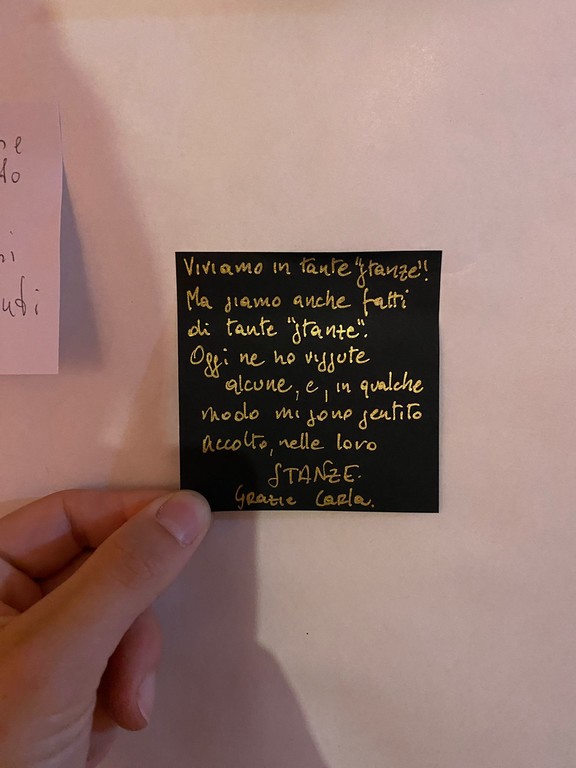 ne
to
i
udi
Viviamo in tante "stanze"!
Ma siamo anche fatti
di tante "stanze".
Oggi ne ho vissute
alcune, e, in qualche
modo mi sono sentito
accolto, nelle loro
STANZE.
Grazie Carla.